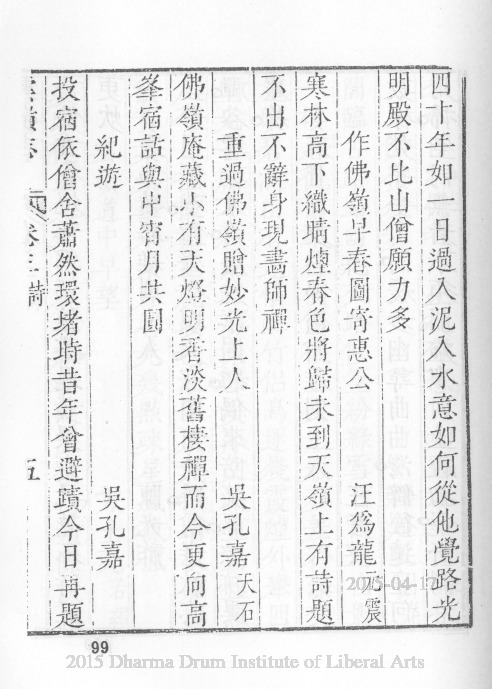 四十年如一日過入泥入水意如何從他覺路光
明殿不比山僧願力多
作佛嶺早春圖寄惠公 汪爲龍元震
寒林高下織晴煙春色將歸未到天嶺上有詩題
不出不辭身現畵師禪
重過佛嶺贈妙光上人 吳孔嘉天石
佛嶺庵藏小有天燈明香淡舊棲禪而今更向高
峯宿話與中宵月共圓
紀遊 吳孔嘉
投宿依僧舍蕭然環堵時昔年曾避蹟今日再題
卷三 詩 五
2015-04-17
99
2015 Dharma Drum Institute of Liberal Arts